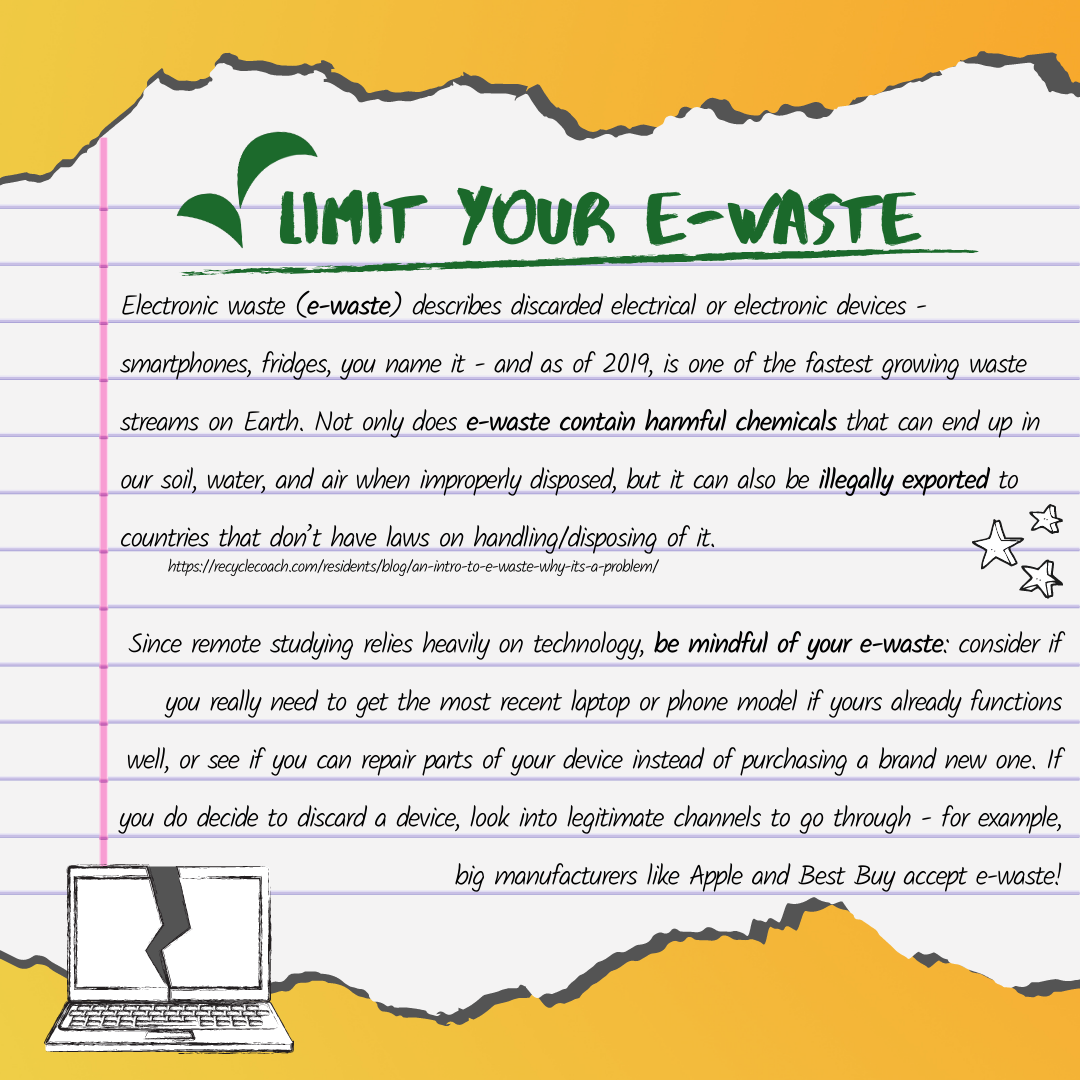 LIMIT YOUR E-WASTE
Electronic waste (e-waste) describes discarded electrical or electronic devices -
smartphones, fridges, you name it - and as of 2019, is one of the fastest growing waste
streams on Earth. Not only does e-waste contain harmful chemicals that can end up in
our soil, water, and air when improperly disposed, but it can also be illegally exported to
countries that don't have laws on handling/disposing of it.
https://recyclecoach.com/residents/blog/an-intro-to-e-waste-why-its-a-problem/
Since remote studying relies heavily on technology, be mindful of your e-waste: consider if
you really need to get the most recent laptop or phone model if yours already functions
well, or see if you can repair parts of your device instead of purchasing a brand new one. If
you do decide to discard a device, look into legitimate channels to go through - for example,
big manufacturers like Apple and Best Buy accept e-waste!